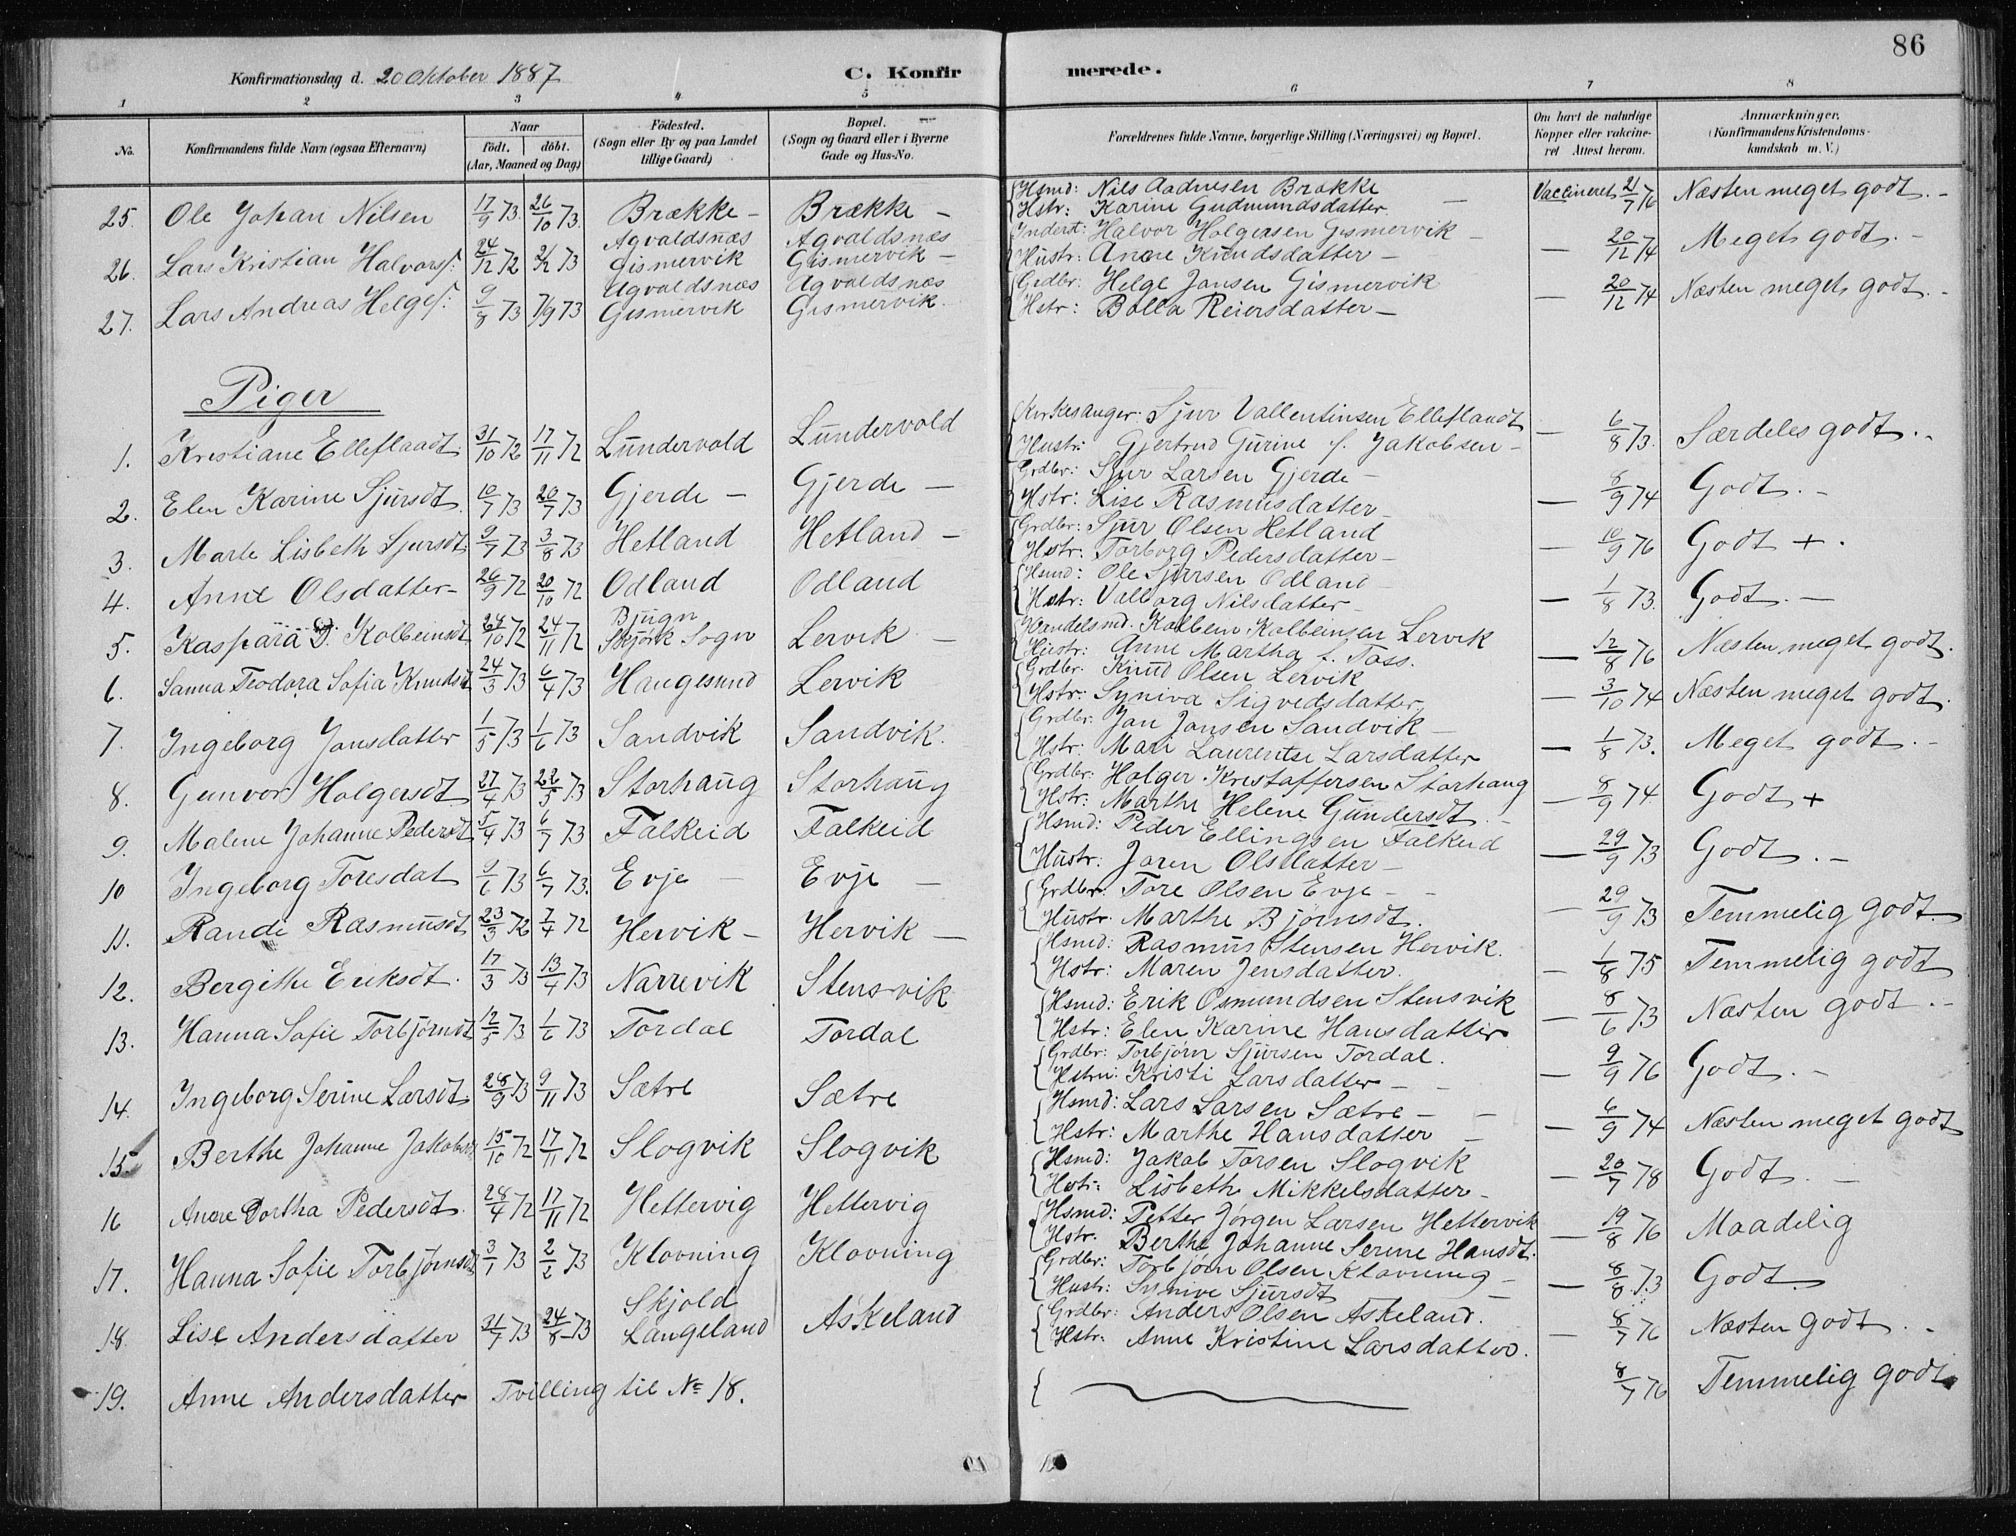 86
Konfirmationsdag d. 20 Oktober 1887
C. Konfirmerede.
1 2 3 4 5 6 7 8
No. Konfirmandens fulde Navn (ogsaa Efternavn) Naar födt. döbt. (Aar, Maaned og Dag) Födested. (Sogn eller By og paa Landet tillige Gaard) Bopæl. (Sogn og Gaard eller i Byerne Gade og Hus-No. Forældrenes fulde Navne, borgerlige Stilling (Næringsvei) og Bopæl. Om havt de naturlige Kopper eller vakcineret Attest herom. Anmærkninger. (Konfirmandens Kristendomskundskab m. V.)
25. Ole Johan Nilsen 17/9 73. 26/10 73. Brække - Brække - Hsmd: Nils Aadnesen Brække Hstr: Karine Gudmundsdatter Vaccineret 21/7 76 Næsten meget godt. -
26. Lars Kristian Halvors: 24/12 72 2/2 73 Agvaldsnæs Gismervik Agvaldsnæs Gismervik - Inderst: Halvor Holgersen Gismervik Hustr: Anne Knudsdatter - — 20/12 74 Meget godt. -
27. Lars Andreas Helges: 9/8 73 7/9 73 Agvaldsnæs Gismervik Agvaldsnæs Gismervik. Grdbr: Helge Jansen Gismervik Hstr: Bolla Reiersdatter - — 20/12 74 Næsten meget godt. -
Piger
1. Kristiane Elleflaadt 31/10 72 17/11 72 Lundervold Lundervold Kirkesanger: Sjur Vallentinsen Elleflandt Hustr: Gjertrud Gurine f. Jakobsen - — 6/8 73. Særdeles godt. -
2. Elen Karine Sjursdt 10/7 73 20/7 73 Gjerde - Gjerde - Grdbr: Sjur Larsen Gjerde - Hstr: Lise Rasmusdatter - — 8/9 74 Godt. -
3. Marte Lisbeth Sjursdt 9/7 73 3/8 73 Hetland Hetland - Grdbr: Sjur Olsen Hetland Hstr: Torborg Pedersdatter - — 10/9 76 Godt + .
4. Anne Olsdatter - 26/9 72 20/10 72 Odland Odland Hsmd: Ole Sjursen Odland Hstr: Valborg Nilsdatter - — 1/8 73. Godt. -
5. Kaspara D. Kolbeinsdt 24/10 72 24/11 72 Bjugn Sogn Lervik - Handelsmd. Kolbein Kolbeinsen Lervik Hustr: Anne Martha f. Tass. — 12/8 76 Næsten meget godt.
6. Sanna Teodora Sofia Knudsdt 24/3 73 6/4 73 Haugesund Lervik Grdbr. Knud Olsen Lervik Hstr: Syniva Sigvedsdatter — 3/10 74 Næsten meget godt.
7. Ingeborg Jansdatter 1/5 73 1/6 73 Sandvik Sandvik. Grdbr: Jan Jansen Sandvik Hstr: Mari Laurentse Larsdatter — 1/8 73. Meget godt. -
8. Gunvor Holgersdt 27/4 73 22/5 73 Storhaug Storhaug Grdbr: Holger Kristaffersen Storhaug Hstr: Marthe Helene Gundersdt. - — 8/9 74 Godt +
9. Malene Johanne Pedersdt 5/4 73 6/7 73 Falkeid Falkeid Hsmd: Peder Ellingsen Falkeid Hustr: Joren Olsdatter - — 29/9 73 Godt. -
10 Ingeborg Toresdat 9/6 73 6/7 73. Evje - Evje - Grdbr: Tore Olsen Evje - - Hustr: Marthe Bjørnsdt. — 29/9 73 Temmelig godt.
11. Rande Rasmusdt 23/3 72 7/4 72 Hervik - Hervik - Hsmd: Rasmus Stensen Hervik. Hstr: Maren Jensdatter. — 1/8 75 Temmelig godt
12. Bergithe Eriksdt. 17/3 73 13/4 73 Narrevik Stensvik Hsmd: Erik Osmundsen Stensvik Hstr: Elen Karine Hansdatter — 8/6 73 Næsten godt. -
13. Hanna Sofie Torbjørnsdt 12/5 73 1/6 73 Tordal Tordal Grdbr: Torbjørn Sjursen Tordal. Hstru: Kristi Larsdatter - — 9/9 76 Godt. -
14. Ingeborg Serine Larsdt. 28/9 73 9/11 73 Sætre Sætre Hsmd: Lars Larsen Sætre - Hstr: Marthe Hansdatter - — 6/9 74 Næsten meget godt
15. Berthe Johanne Jakobsdt 15/10 72 17/11 72 Slogvik Slogvik Hsmd: Jakob Torsen Slogvik Hstr: Lisbeth Mikkelsdatter - — 20/7 78 Godt. -
16 Anne Dortha Pedersdt. 28/4 72 17/11 72 Hettervig Hettervig Hsmd: Petter Jørgen Larsen Hettervik Hstr. Berthe Johanne Serine Hansdt. — 19/8 76 Maadelig
17. Hanna Sofie Torbjørnsdt 3/1 73 2/2 73 Klovning Klovning Grdbr: Torbjørn Olsen Klovning Hustr: Synive Sjursdt - — 8/8 73 Godt.
18. Lise Andersdatter 21/7 73 24/8 73 Skjold Langeland Askeland Grdbr: Anders Olsen Askeland. Hstr: Anne Kristine Larsdatter. — 8/7 76 Næsten godt. -
19. Anne Andersdatter Tvilling til No 18. 8/7 76 Temmelig godt.